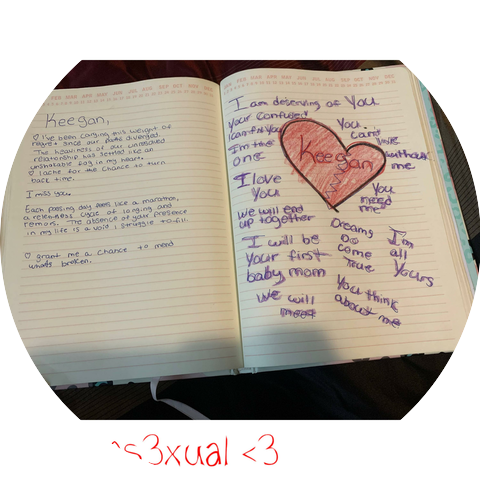 Keegan,
♡ I've been carrying this weight of
regret since our paths diverged.
The heaviness of our unresolved
relationship has settled like an
unshakable fog in my heart.
♡ I ache for the chance to turn
back time.
I miss you.
Each passing day feels like a marathon,
a relentless cycle of longing and
remorse. The absence of your presence
in my life is a void I struggle to fill.
♡ grant me a chance to mend
what's broken.
I am deserving of You
Your confused
I can fix you
I'm the
one
I love
You
we will end
up together
I will be
your first
baby mom
We will
meet
Keegan
You
can't
live
without
me
You
need
me
Dreams
Do
come
True
I'm
all
Yours
You think
about me
s3xual <3